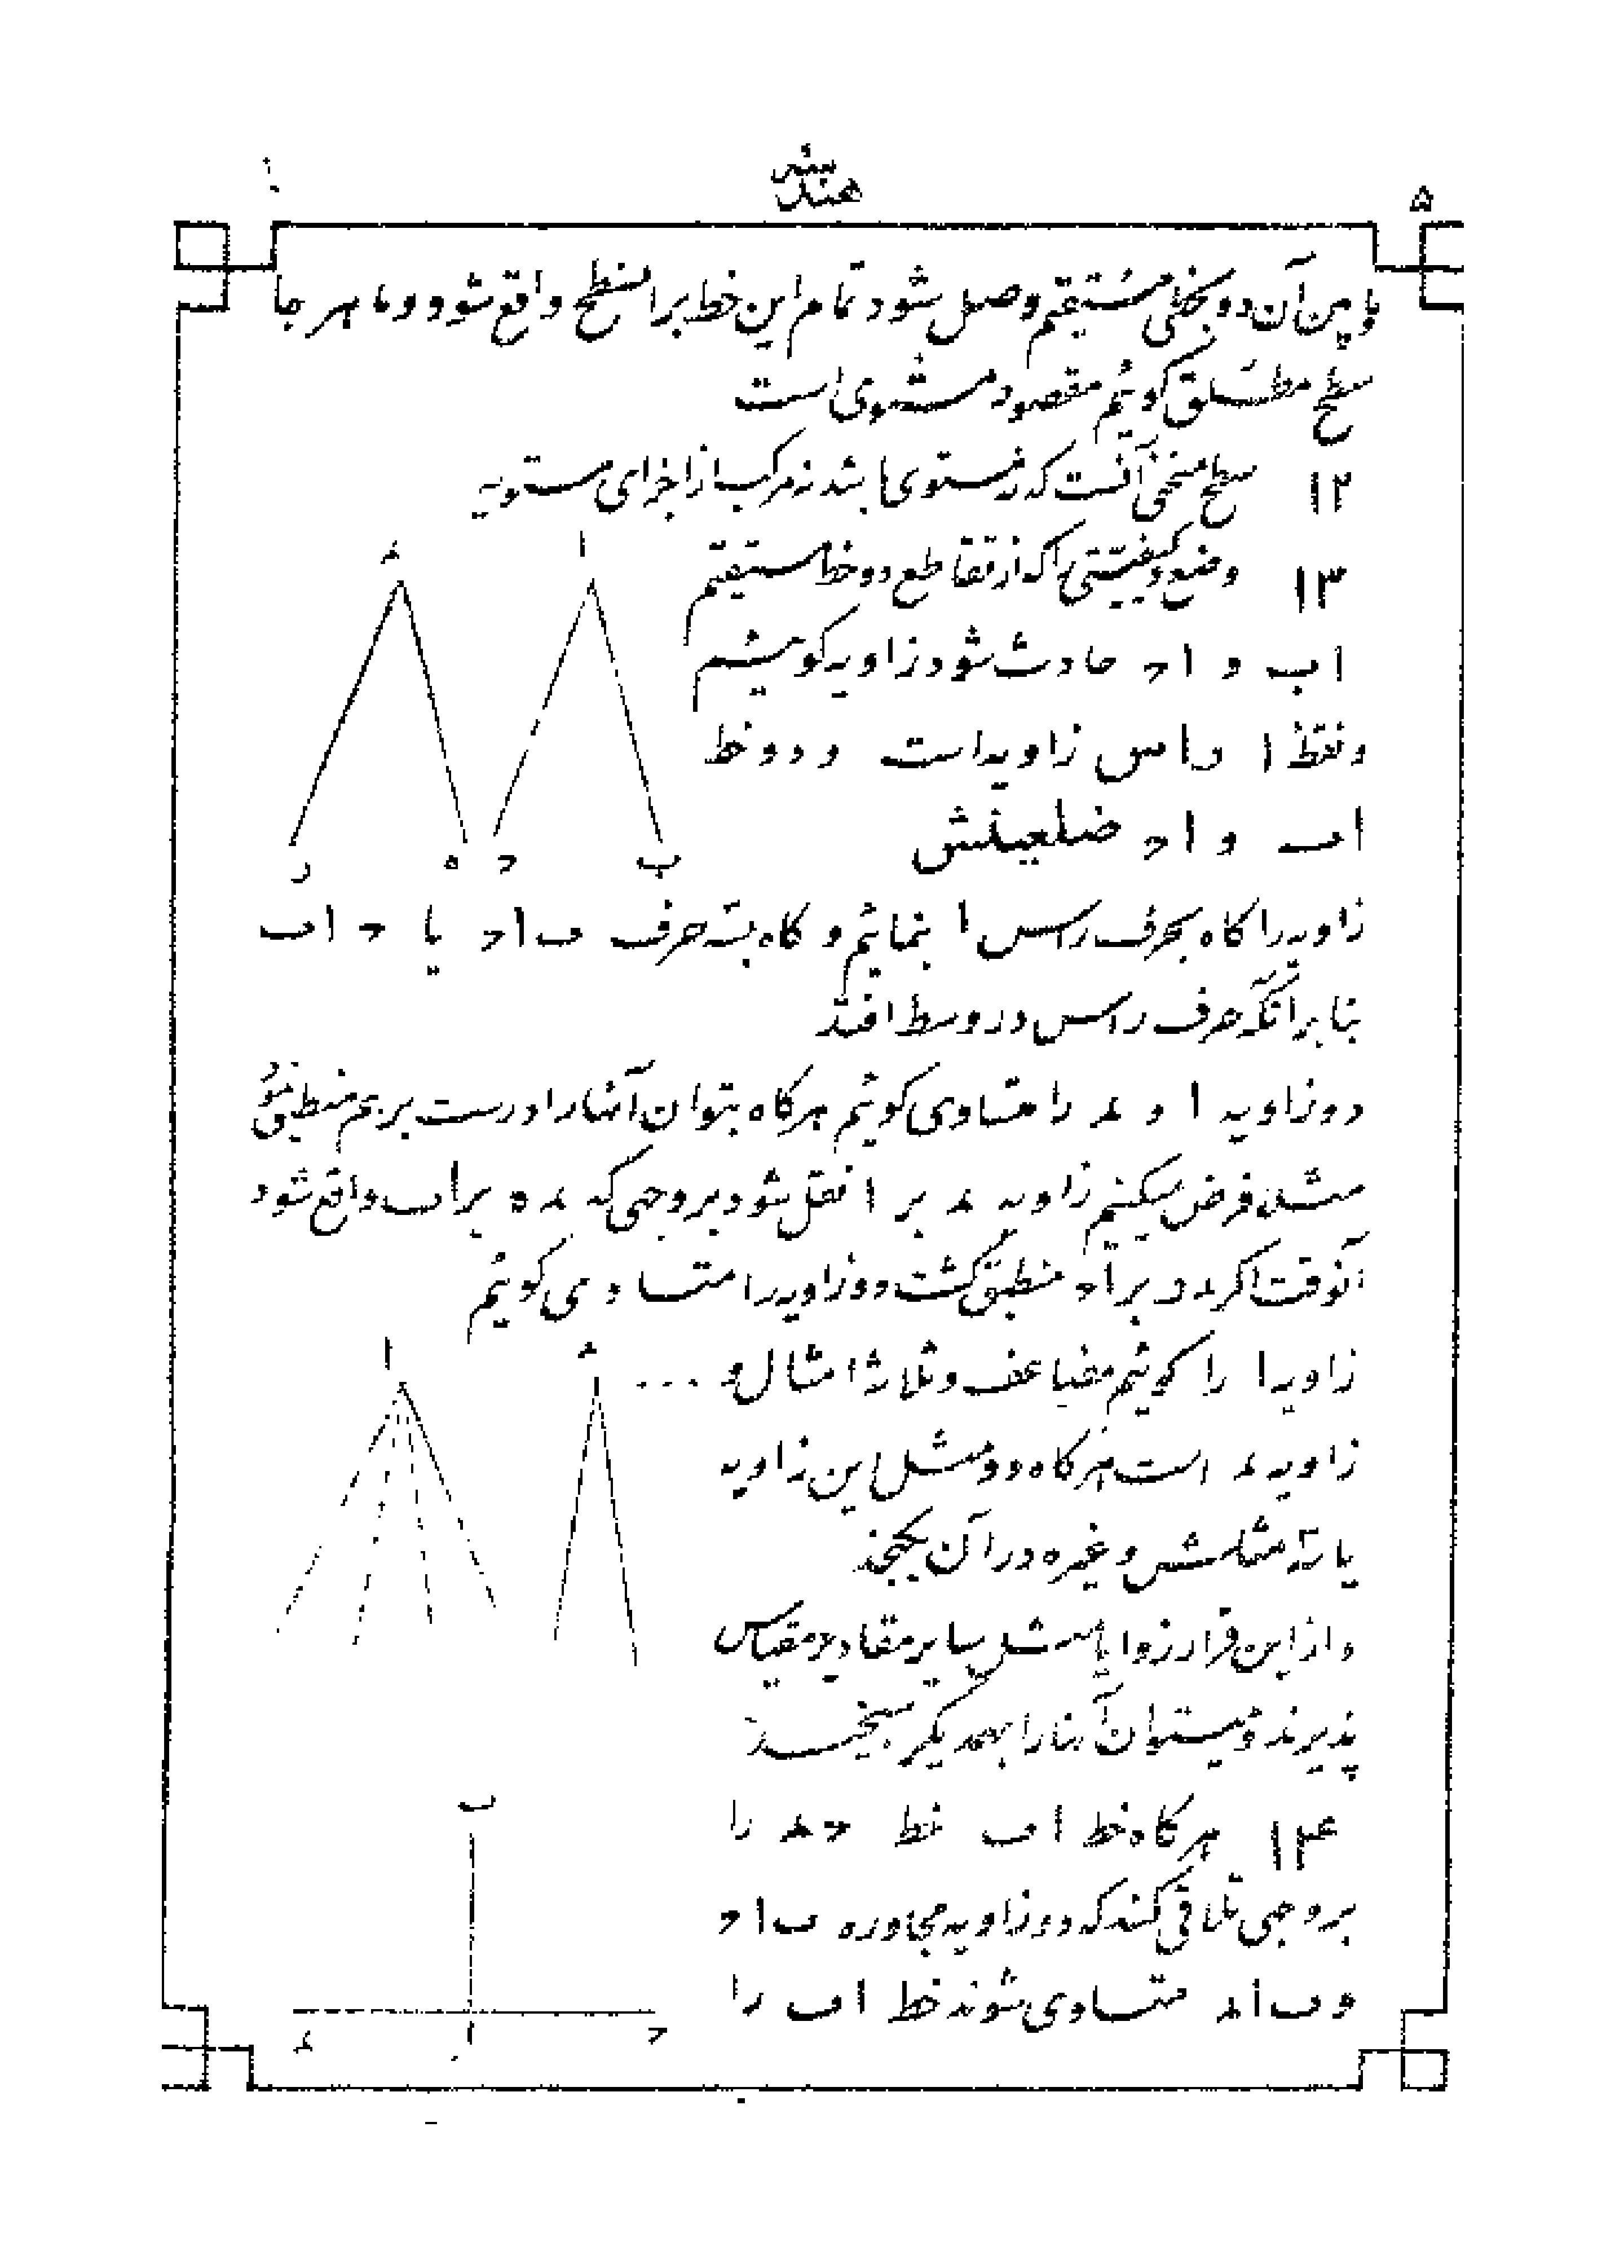 هندسه
۵
و بین آن دو بخطی مستقیم وصل شود تمام این خط بر آن سطح واقع شود و ما هر جا
سطح مطلق گوئیم مقصود مستوی است
۱۲ سطح منحنی آنست که نه مستوی باشد نه مرکب از اجزای مستویه
۱۳ وضع و کیفیتی را که از تقاطع دو خط مستقیم
اب و اح حادث شود زاویه گوئیم
و نقطهٔ ا رأس زاویه است و دو خط
اب و اح ضلعینش
ء ا
ر ه ح ب
زاویه را گاه بحرف رأس ا بنمائیم و گاه بسه حرف ب اح یا ح اب
بنا بر آنکه حرف رأس در وسط افتد
دو زاویه ا و ء را متساوی گوئیم هر گاه بتوان آنها را درست بر هم منطبق نمود
مثلا فرض میکنیم زاویه ء بر ا نقل شود بر وجهی که ء ه بر اب واقع شود
آنوقت اگر ء ر بر اح منطبق گشت دو زاویه را متساوی گوئیم
زاویه ا را گوئیم مضاعف و ثلاثه امثال و ...
ا ء
زاویه ء است هر گاه دو مثل این زاویه
یا سه مثلش و غیره در آن بگنجد
و از این قرار زوایا مثل سایر مقادیر مقیاس
پذیرند و میتوان آنها را بهمدیگر سنجید
۱۴ هر گاه خط اب خط حء را
بر وجهی تلاقی کند که دو زاویه مجاوره ب اح
و ب اء متساوی شوند خط اب را
ب
ء ا ح